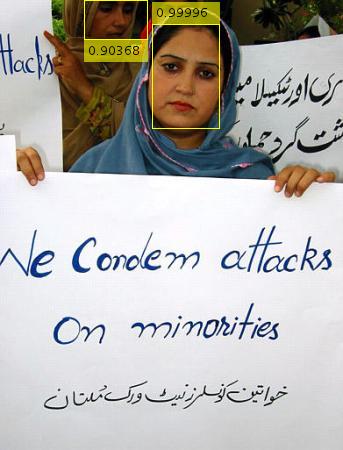 0.99996
0.90368
ttacks
ری اور ٹیکسیلا میں
شت گرد
We Condem attacks
On minorities
خواتین کونسلرز نیٹ ورک مُلتان